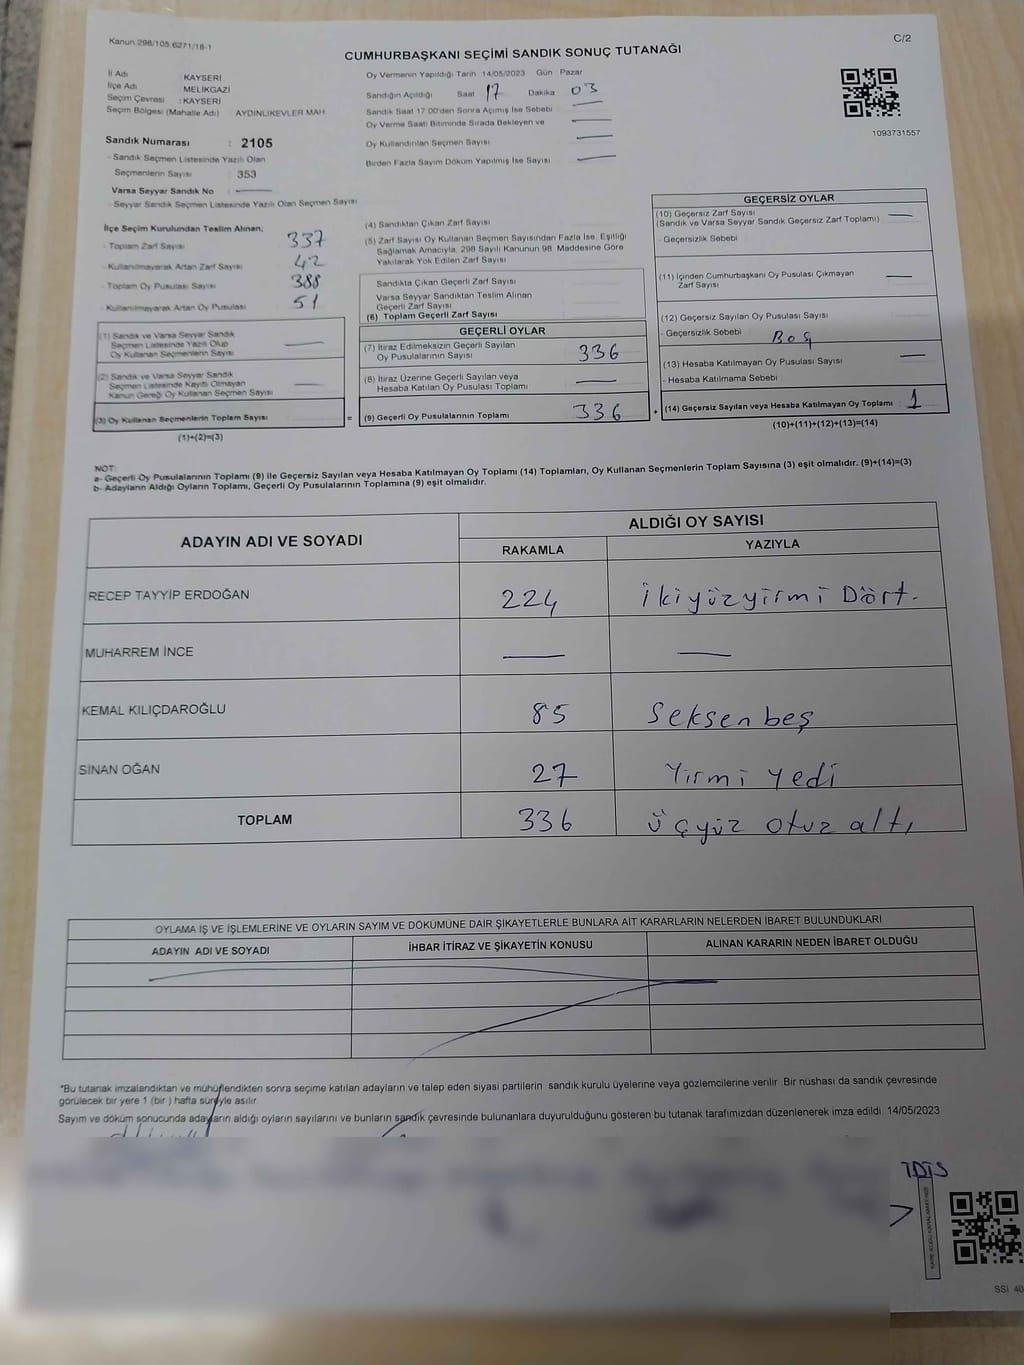 Kanun:298/105,6271/18-1
C/2
CUMHURBAŞKANI SEÇİMİ SANDIK SONUÇ TUTANAĞI
İl Adı KAYSERİ
İlçe Adı MELİKGAZİ
Seçim Çevresi : KAYSERİ
Seçim Bölgesi (Mahalle Adı) : AYDINLIKEVLER MAH
Oy Vermenin Yapıldığı Tarih 14/05/2023 Gün Pazar
Sandığın Açıldığı Saat 17 Dakika 03
Sandık Saat 17:00'den Sonra Açılmış İse Sebebi —
Oy Verme Saati Bitiminde Sırada Bekleyen ve —
Oy Kullandırılan Seçmen Sayısı —
Birden Fazla Sayım Döküm Yapılmış İse Sayısı —
1093731557
Sandık Numarası : 2105
- Sandık Seçmen Listesinde Yazılı Olan
Seçmenlerin Sayısı : 353
Varsa Seyyar Sandık No : —
- Seyyar Sandık Seçmen Listesinde Yazılı Olan Seçmen Sayısı
İlçe Seçim Kurulundan Teslim Alınan;
- Toplam Zarf Sayısı 337
- Kullanılmayarak Artan Zarf Sayısı 42
- Toplam Oy Pusulası Sayısı 388
- Kullanılmayarak Artan Oy Pusulası 51
(1) Sandık ve Varsa Seyyar Sandık
Seçmen Listesinde Yazılı Olup
Oy Kullanan Seçmenlerin Sayısı —
(2) Sandık ve Varsa Seyyar Sandık
Seçmen Listesinde Kayıtlı Olmayan
Kanun Gereği Oy Kullanan Seçmen Sayısı —
(3) Oy Kullanan Seçmenlerin Toplam Sayısı =
(1)+(2)=(3)
(4) Sandıktan Çıkan Zarf Sayısı
(5) Zarf Sayısı Oy Kullanan Seçmen Sayısından Fazla İse, Eşitliği
Sağlamak Amacıyla, 298 Sayılı Kanunun 98. Maddesine Göre
Yakılarak Yok Edilen Zarf Sayısı
Sandıkta Çıkan Geçerli Zarf Sayısı
Varsa Seyyar Sandıktan Teslim Alınan
Geçerli Zarf Sayısı
(6) Toplam Geçerli Zarf Sayısı
GEÇERLİ OYLAR
(7) İtiraz Edilmeksizin Geçerli Sayılan
Oy Pusulalarının Sayısı 336
(8) İtiraz Üzerine Geçerli Sayılan veya
Hesaba Katılan Oy Pusulası Toplamı —
(9) Geçerli Oy Pusulalarının Toplamı 336 +
GEÇERSİZ OYLAR
(10) Geçersiz Zarf Sayısı —
(Sandık ve Varsa Seyyar Sandık Geçersiz Zarf Toplamı)
- Geçersizlik Sebebi
(11) İçinden Cumhurbaşkanı Oy Pusulası Çıkmayan
Zarf Sayısı —
(12) Geçersiz Sayılan Oy Pusulası Sayısı
- Geçersizlik Sebebi Boş
(13) Hesaba Katılmayan Oy Pusulası Sayısı —
- Hesaba Katılmama Sebebi
(14) Geçersiz Sayılan veya Hesaba Katılmayan Oy Toplamı : 1
(10)+(11)+(12)+(13)=(14)
NOT:
a- Geçerli Oy Pusulalarının Toplamı (9) ile Geçersiz Sayılan veya Hesaba Katılmayan Oy Toplamı (14) Toplamları, Oy Kullanan Seçmenlerin Toplam Sayısına (3) eşit olmalıdır. (9)+(14)=(3)
b- Adayların Aldığı Oyların Toplamı, Geçerli Oy Pusulalarının Toplamına (9) eşit olmalıdır.
ADAYIN ADI VE SOYADI
ALDIĞI OY SAYISI
RAKAMLA YAZIYLA
RECEP TAYYİP ERDOĞAN 224 ikiyüzyirmi Dört.
MUHARREM İNCE — —
KEMAL KILIÇDAROĞLU 85 Seksen beş
SİNAN OĞAN 27 Yirmi yedi
TOPLAM 336 üçyüz otuz altı
OYLAMA İŞ VE İŞLEMLERİNE VE OYLARIN SAYIM VE DÖKÜMÜNE DAİR ŞİKAYETLERLE BUNLARA AİT KARARLARIN NELERDEN İBARET BULUNDUKLARI
ADAYIN ADI VE SOYADI İHBAR İTİRAZ VE ŞİKAYETİN KONUSU ALINAN KARARIN NEDEN İBARET OLDUĞU
*Bu tutanak imzalandıktan ve mühürlendikten sonra seçime katılan adayların ve talep eden siyasi partilerin sandık kurulu üyelerine veya gözlemcilerine verilir. Bir nüshası da sandık çevresinde
görülecek bir yere 1 (bir) hafta süreyle asılır.
Sayım ve döküm sonucunda adayların aldığı oyların sayılarını ve bunların sandık çevresinde bulunanlara duyurulduğunu gösteren bu tutanak tarafımızdan düzenlenerek imza edildi. 14/05/2023